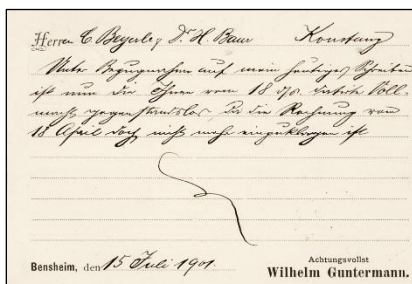 Herren C. Beyerle, Dr. H. Baur Konstanz
Unter Bezugnahme auf mein heutiges Schreiben
ist nun die Ihnen vom 18 ds. datirte Voll-
macht gegenstandslos, da die Rechnung vom
18 April doch nicht mehr einzuklagen ist
Bensheim, den 15 Juli 1901.
Achtungsvollst
Wilhelm Guntermann.